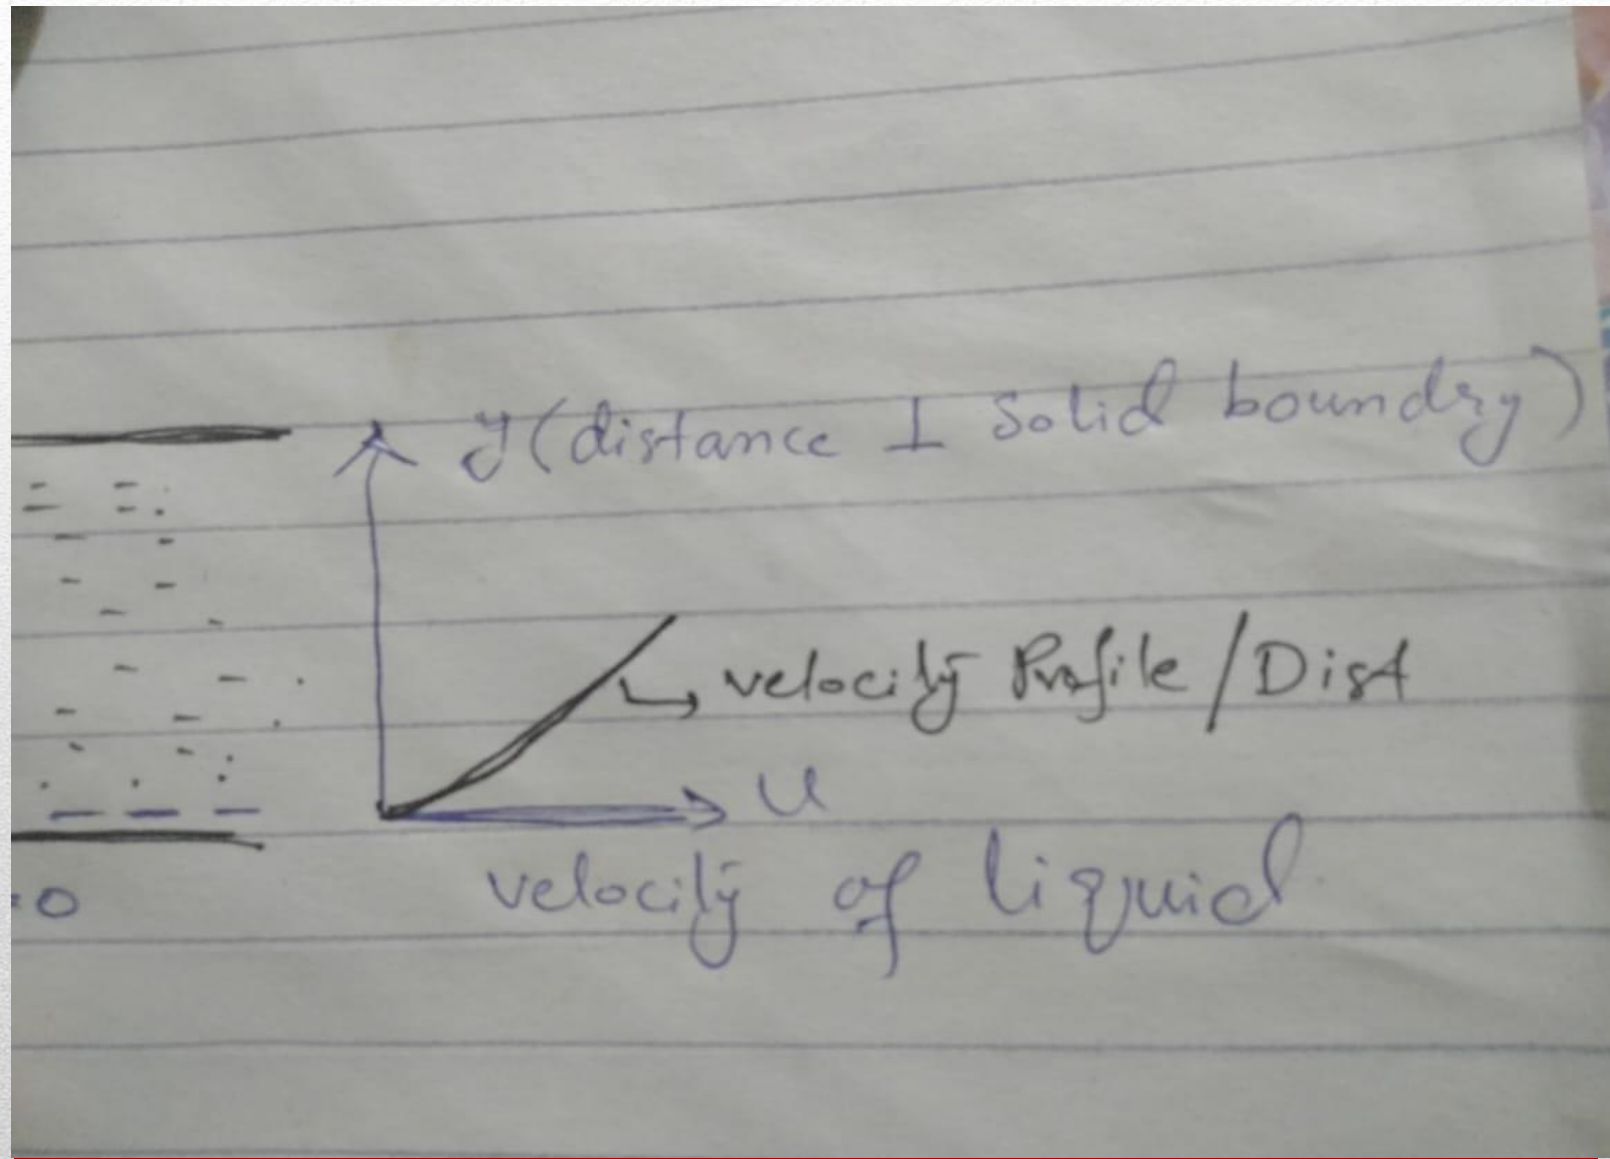 y (distance ⊥ Solid boundry)
velocity Profile / Dist
u
=0
velocity of liquid